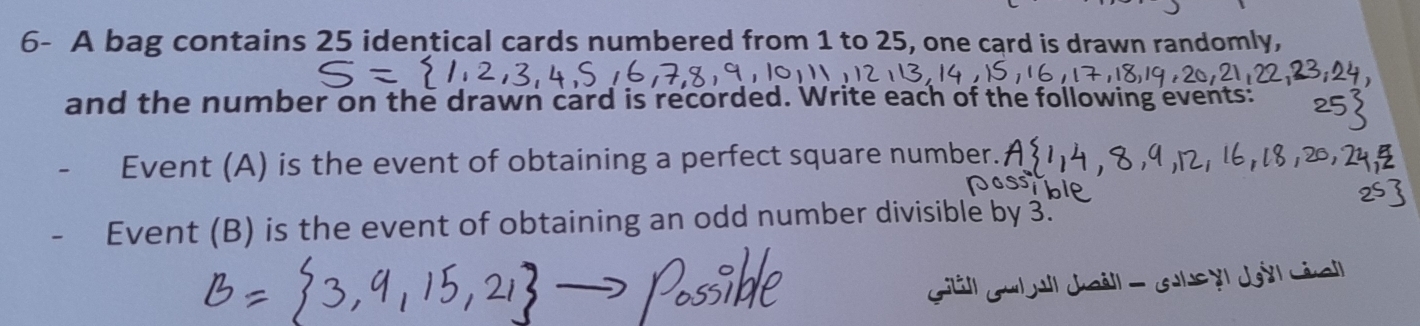 6- A bag contains 25 identical cards numbered from 1 to 25, one card is drawn randomly,
S = {1,2,3,4,5,6,7,8,9,10,11,12,13,14,15,16,17,18,19,20,21,22,23,24,
25}
and the number on the drawn card is recorded. Write each of the following events:
- Event (A) is the event of obtaining a perfect square number. A{1,4,8,9,12,16,18,20,24,
25}
possible
- Event (B) is the event of obtaining an odd number divisible by 3.
B = {3,9,15,21} → Possible
الصف الأول الإعدادى – الفصل الدراسى الثاني